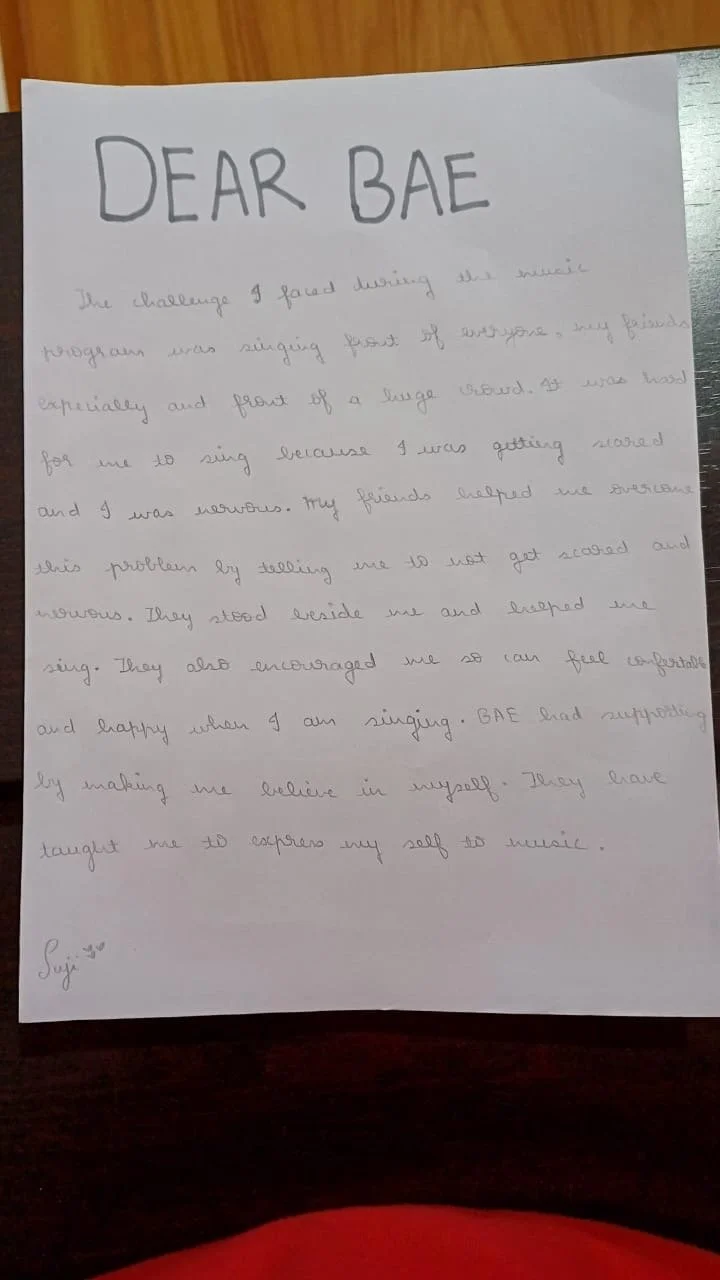 DEAR BAE
The challenge I faced during the music
program was singing front of everyone, my friends
expecially and front of a huge crowd. It was hard
for me to sing because I was getting scared
and I was nervous. My friends helped me overcome
this problem by telling me to not get scared and
nervous. They stood beside me and helped me
sing. They also encouraged me so can feel confertable
and happy when I am singing. BAE had supporting
by making me believe in myself. They have
taught me to express my self to music.
Suji